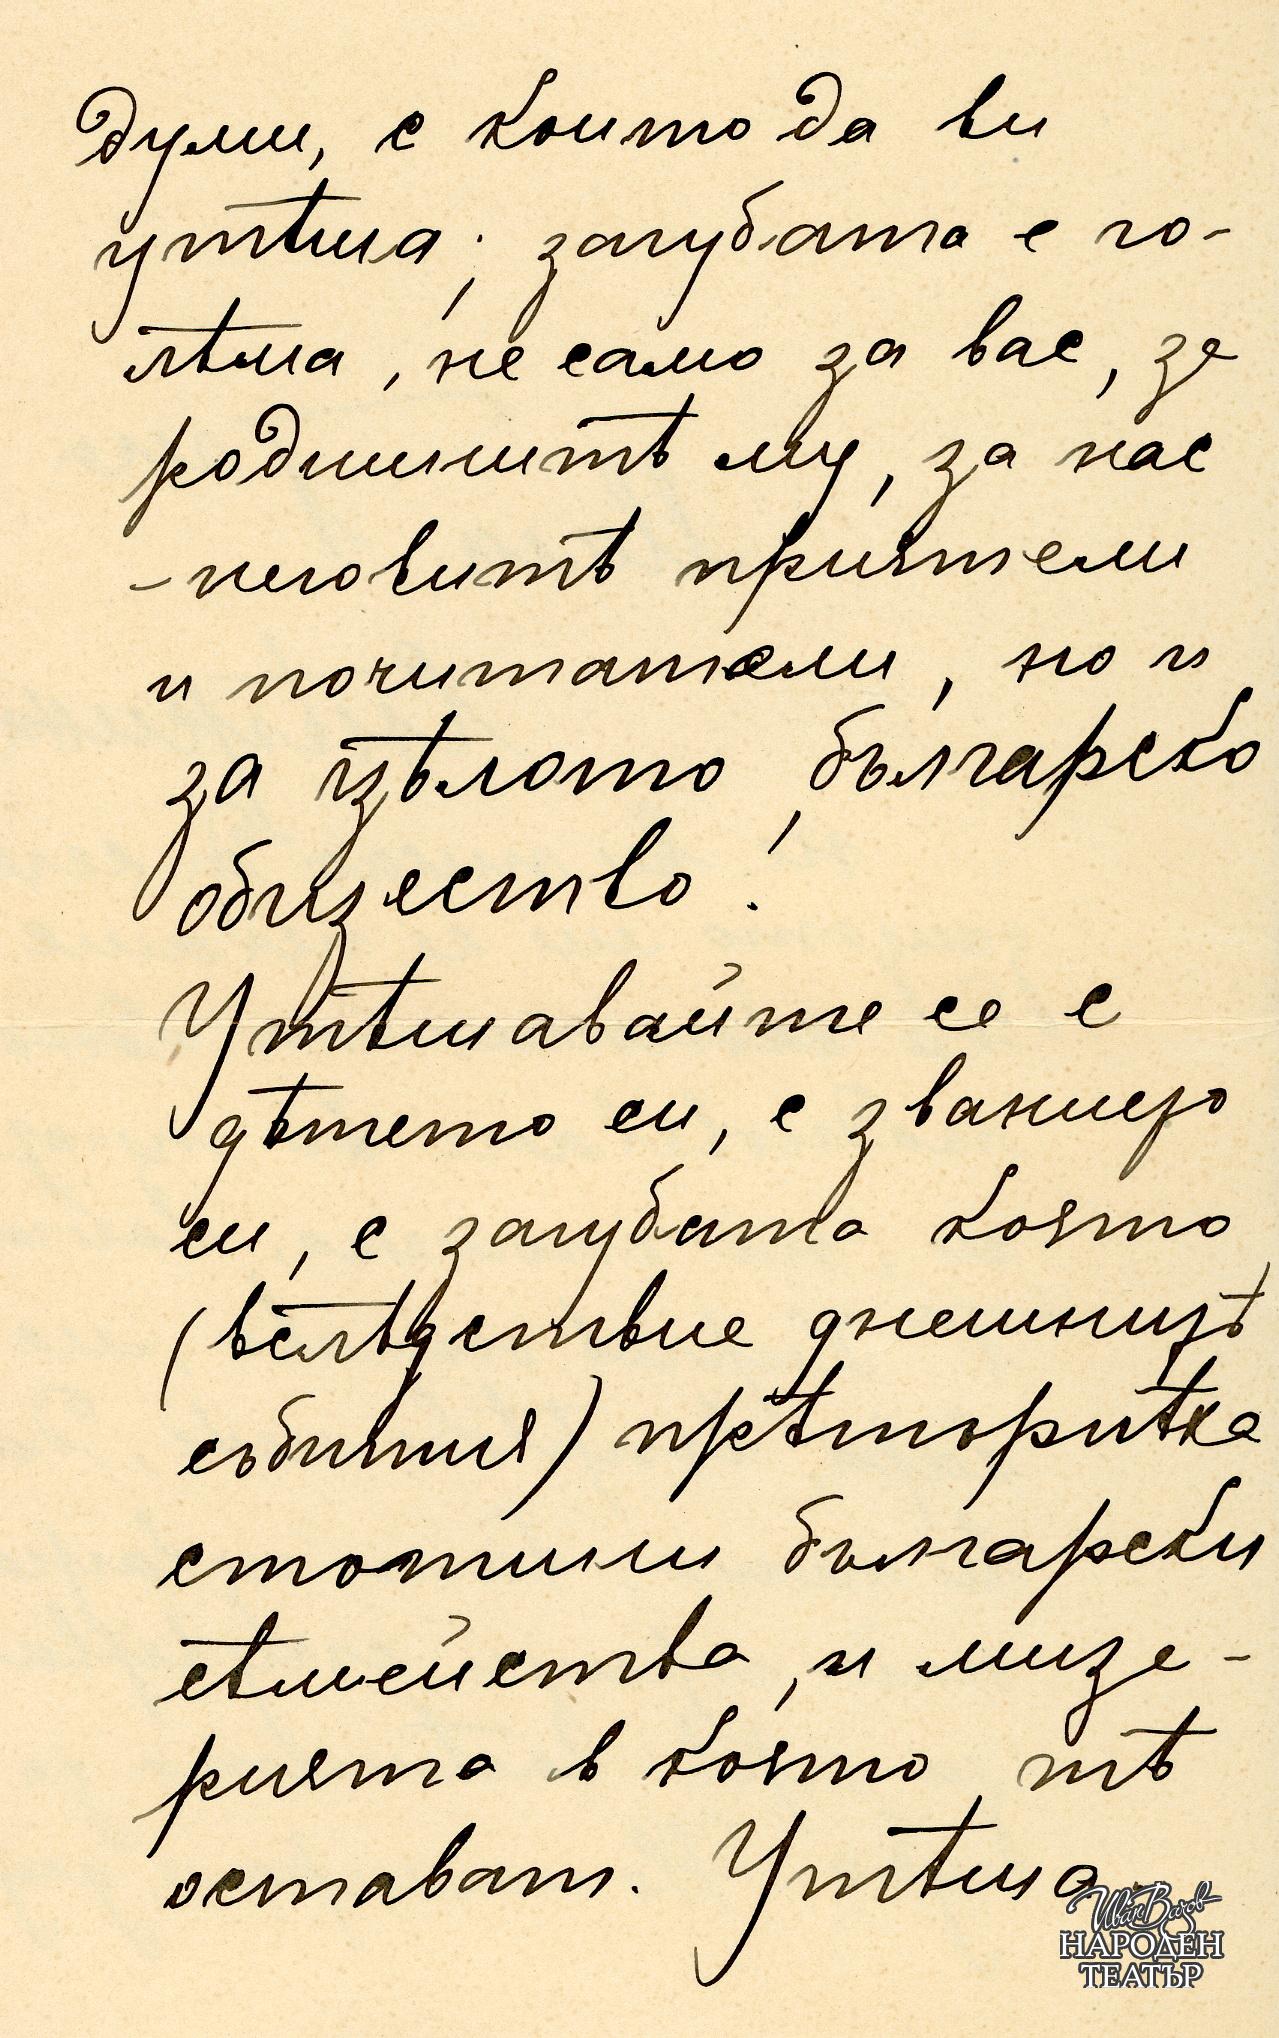 думи, с които да ви
утѣша; загубата е го-
лѣма, не само за вас, за
роднинитѣ му, за нас
- неговитѣ приятели
и почитатели, но и
за цѣлото българско
общество!
Утѣшавайте се с
дѣтето си, с званието
си, с загубата която
(вслѣдствие днешнитѣ
събития) прѣтърпѣха
стотини български
сѣмейства, и мизе-
рията в която тѣ
остават. Утѣша-
Иван Вазов
НАРОДЕН
ТЕАТЪР